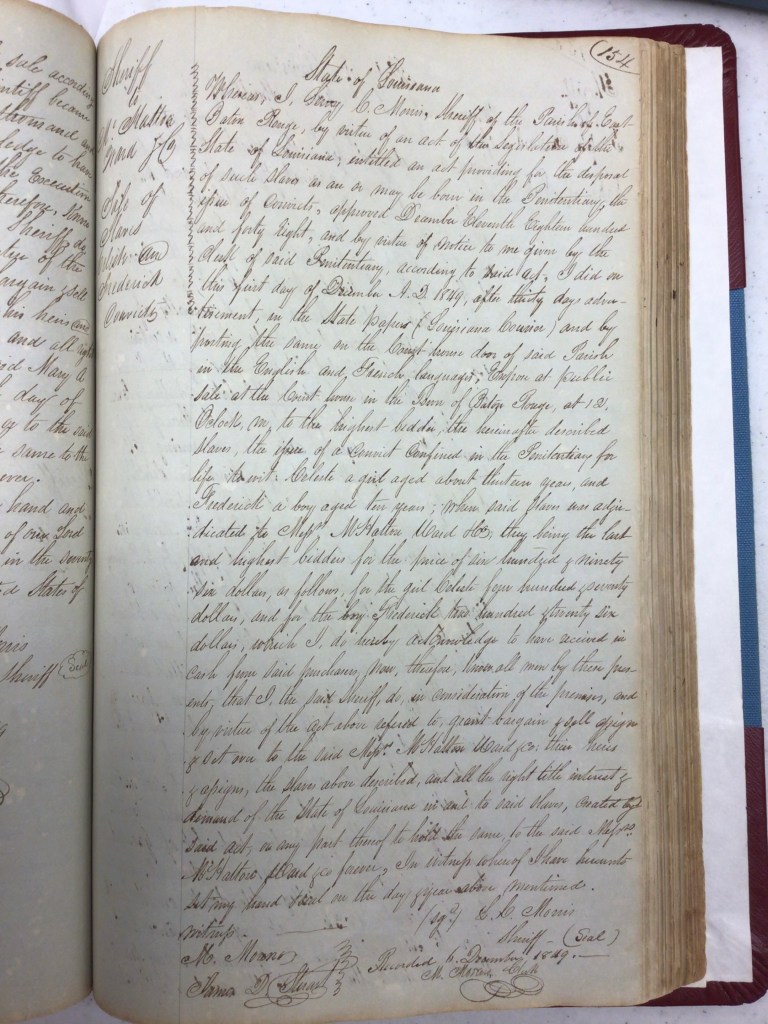 sale according
ntiff became
thousand and
ledge to have
the Execution
herefore, Know
Sheriff do
of the
argain & sell
his heirs and
and all right
Mary A
day of
to the said
same to the
ever.
hand and
of our Lord
in the seventy
d States of
Sheriff (Seal)
154
Sheriff
to
McHatton
Ward & Co
Sale of
Slaves
Celeste and
Frederick
Convicts
State of Louisiana
Whereas, I, Leroy, C. Morris, Sheriff of the Parish of East
Baton Rouge, by virtue of an act of the Legislature of the
State of Louisiana, entitled an act providing for the disposal
of such slaves as are or may be born in the Penitentiary, the
issue of convicts, approved December Eleventh Eighteen hundred
and forty Eight, and by virtue of Notice to me given by the
Clerk of said Penitentiary, according to said act, I did on
this first day of December A.D. 1849, after thirty days adver-
tisement, in the State papers (Louisiana Courier) and by
posting the same on the Court house door of said Parish
in the English and French languages, Expose at public
sale at the Court house in the Town of Baton Rouge, at 12,
Oclock, M, to the highest bidder, the hereinafter described
slaves, the issue of a Convict confined in the Penitentiary for
life to wit: Celeste a girl aged about thirteen years, and
Frederick a boy aged ten years; when said slaves was adju-
dicated to Messrs McHatton Ward &Co; they being the last
and highest bidders for the price of six hundred & ninety
six dollars, as follows, for the girl Celeste four hundred & seventy
dollars, and for the boy Frederick two hundred & twenty six
dollars, which I, do hereby acknowledge to have received in
cash from said purchasers, Now, therefore, know all men by these pres-
ents, that I, the said Sheriff, do, in consideration of the premises, and
by virtue of the Act above refered to, grant bargain & sell assign
& set over to the said Messrs. McHatton Ward &co. their heirs
& assigns, the slaves above described, and all the right title interest &
demand of the State of Louisiana in and to said slaves, created by
said act, or any part thereof to hold the same, to the said Messrs.
McHatton Ward &co forever, In witness whereof I have hereunto
set my hand & seal on the day & year above mentioned.
(sgd) L. C. Morris
witness.
Sheriff - (Seal)
M. Morans
James D.
Recorded 6. December 1849.
M. Clerk